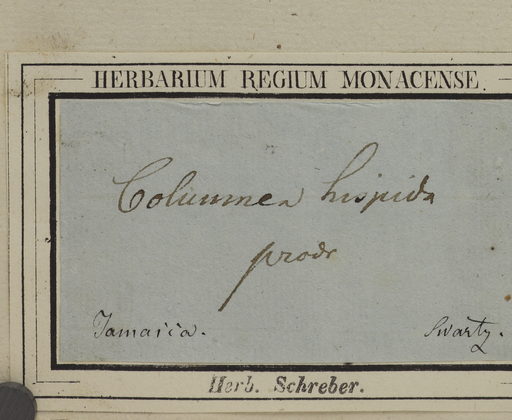 HERBARIUM REGIUM MONACENSE
Columnea hispida
prodr
Jamaica. Swartz.
Herb. Schreber.